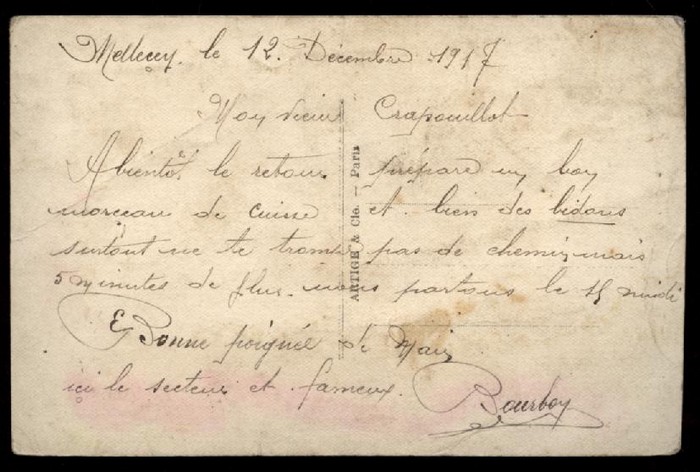 Mellecey. le 12. Décembre 1917
Mon vieux Crapouillot
A bientôt le retour prépare un bon
morceau de cuisse et bien des bidons
surtout ne te trompe pas de chemin mais
5 minutes de plus. nous partons le 15 midi
Bonne poignée de Main
ici le secteur et fameux.
Bourbon
ARTIGE & Cie. — Paris